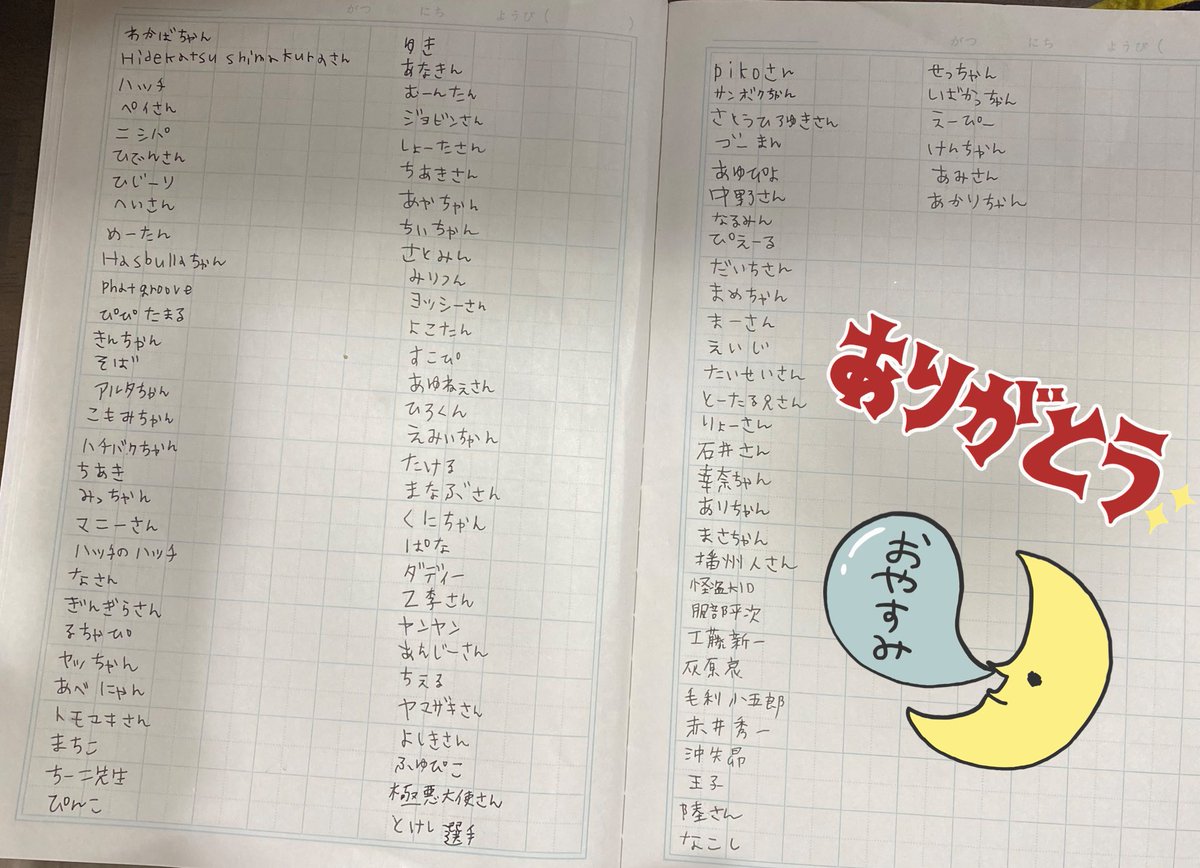 がつ にち ようび( )
わかばちゃん
Hidekatsu shimakuraさん
ハッチ
ペイさん
ニシパ
ひでんさん
ひじーり
へいさん
めーたん
Hasbullaちゃん
phatgroove
ぴぴたまる
きんちゃん
そば
アルタちゃん
こもみちゃん
ハチバクちゃん
ちあき
みっちゃん
マニーさん
ハッチのハッチ
なさん
ぎんぎらさん
るちゃぴ
ヤッちゃん
あべにゃん
トモユキさん
まちこ
ちーニ先生
ぴんこ
ゆき
あなきん
むーんたん
ジョビンさん
しょーたさん
ちあきさん
あやちゃん
ちぃちゃん
さとみん
みりつん
ヨッシーさん
よこたん
すこぴ
あゆねぇさん
ひろくん
えみぃちゃん
たける
まなぶさん
くにちゃん
ぱな
ダディー
乙李さん
ヤンヤン
あんじーさん
ちぇる
ヤマザキさん
よしきさん
ふゆぴこ
極悪大使さん
とけし選手
がつ にち ようび(
pikoさん
サンボクちゃん
さとうひろゆきさん
づーまん
あゆぴよ
中野さん
なるみん
ぴえーる
だいちさん
まめちゃん
まーさん
えいじ
たいせいさん
とーたる兄さん
りょーさん
石井さん
幸奈ちゃん
ありちゃん
まさちゃん
播州人さん
怪盗KID
服部平次
工藤新一
灰原哀
毛利小五郎
赤井秀一
沖矢昴
王子
陸さん
なこし
せっちゃん
いばかっちゃん
えーぴー
けんちゃん
あみさん
あかりちゃん
ありがとう
おやすみ